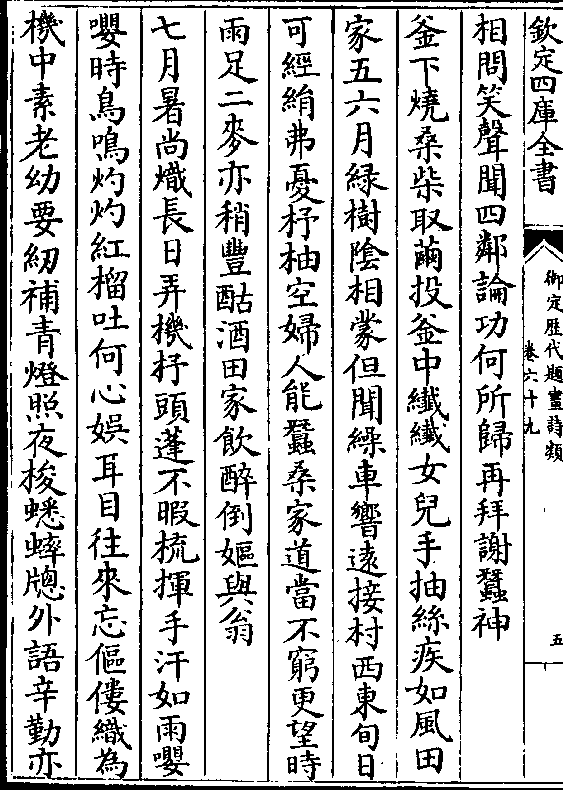 欽定四庫全書
御定歴代題畫詩類
卷六十九
五
相問笑聲聞四鄰論功何所歸再拜謝蠶神
釜下燒桑柴取繭投釜中纎纎女兒手抽絲疾如風田
家五六月緑樹陰相蒙但聞繰車響遠接村西東旬日
可經絹弗憂杼柚空婦人能蠶桑家道當不窮更望時
雨足二麥亦稍豐酤酒田家飲醉倒嫗與翁
七月暑尚熾長日弄機杼頭蓬不暇梳揮手汗如雨嚶
嚶時鳥鳴灼灼紅榴吐何心娛耳目往來忘傴僂織為
機中素老幼要紉補青燈照夜梭蟋蟀牕外語辛勤亦